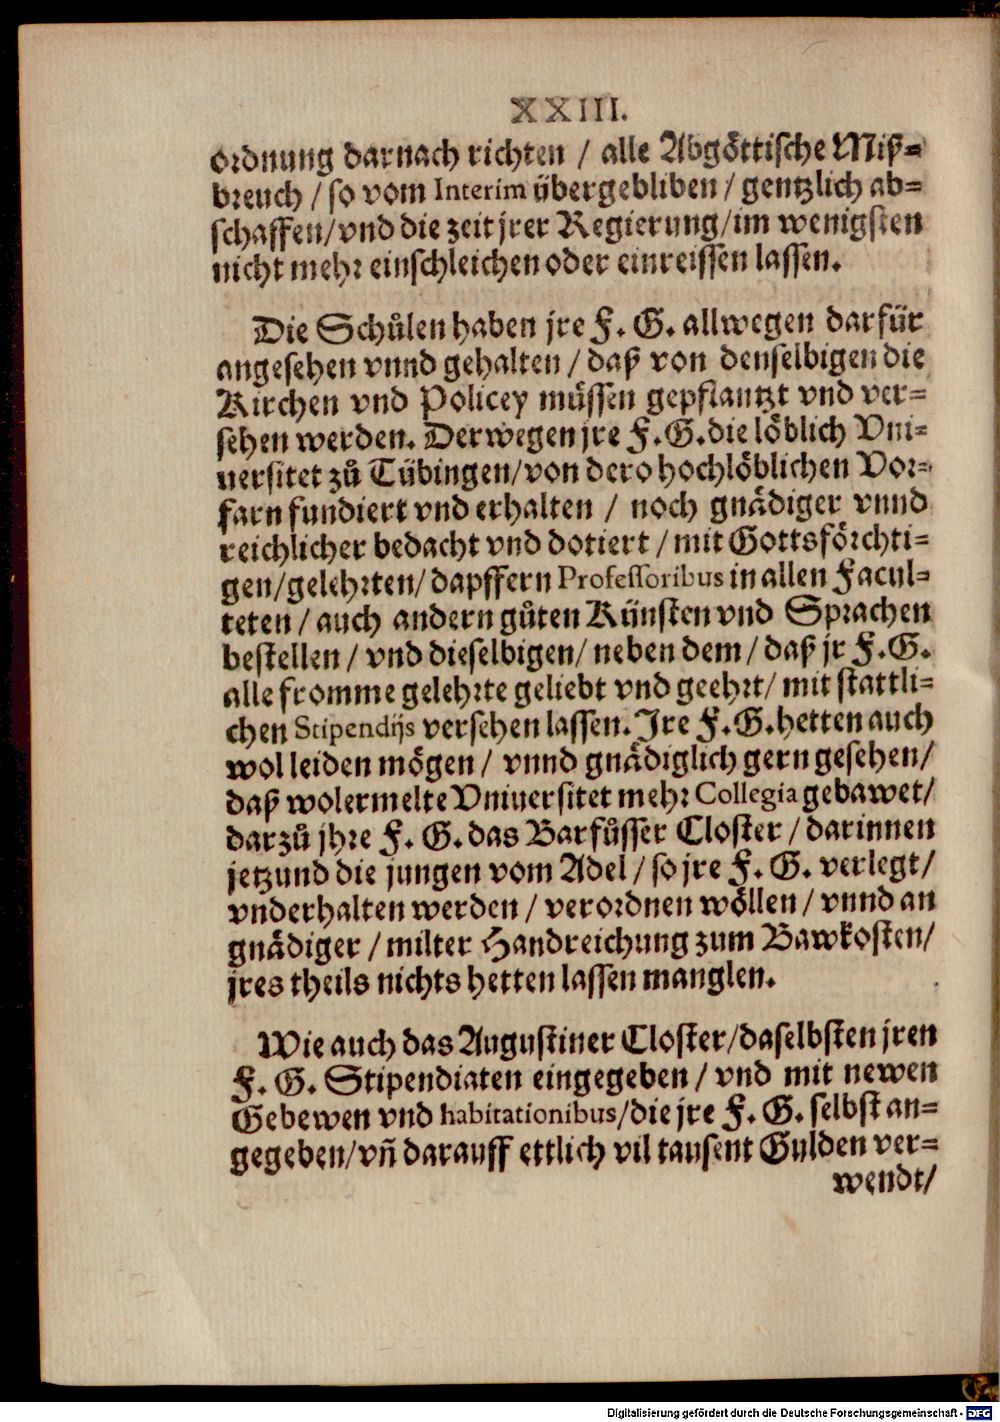 XXIII.
ordnung darnach richten / alle Abgöttische Miß=
breuch / so vom Interim übergebliben / gentzlich ab=
schaffen / vnd die zeit jrer Regierung / im wenigsten
nicht mehr einschleichen oder einreissen lassen.
Die Schůlen haben jre F. G. allwegen darfür
angesehen vnnd gehalten / daß von denselbigen die
Kirchen vnd Policey müssen gepflantzt vnd ver=
sehen werden. Derwegen jre F. G. die löblich Vni=
uersitet zů Tübingen / von dero hochlöblichen Vor=
farn fundiert vnd erhalten / noch gnädiger vnnd
reichlicher bedacht vnd dotiert / mit Gottsförchti=
gen / gelehrten / dapffern Professoribus in allen Facul=
teten / auch andern gůten Künsten vnd Sprachen
bestellen / vnd dieselbigen / neben dem / daß jr F. G.
alle fromme gelehrte geliebt vnd geehrt / mit stattli=
chen Stipendijs versehen lassen. Jre F. G. hetten auch
wol leiden mögen / vnnd gnädiglich gern gesehen /
daß wolermelte Vniuersitet mehr Collegia gebawet /
darzů jhre F. G. das Barfůsser Closter / darinnen
jetzund die jungen vom Adel / so jre F. G. verlegt /
vnderhalten werden / verordnen wöllen / vnnd an
gnädiger / milter Handreichung zum Bawkosten /
jres theils nichts hetten lassen manglen.
Wie auch das Augustiner Closter / daselbsten jren
F. G. Stipendiaten eingegeben / vnd mit newen
Gebewen vnd habitationibus / die jre F. G. selbst an=
gegeben / vñ darauff ettlich vil tausent Gulden ver=
wendt /
Digitalisierung gefördert durch die Deutsche Forschungsgemeinschaft - DFG